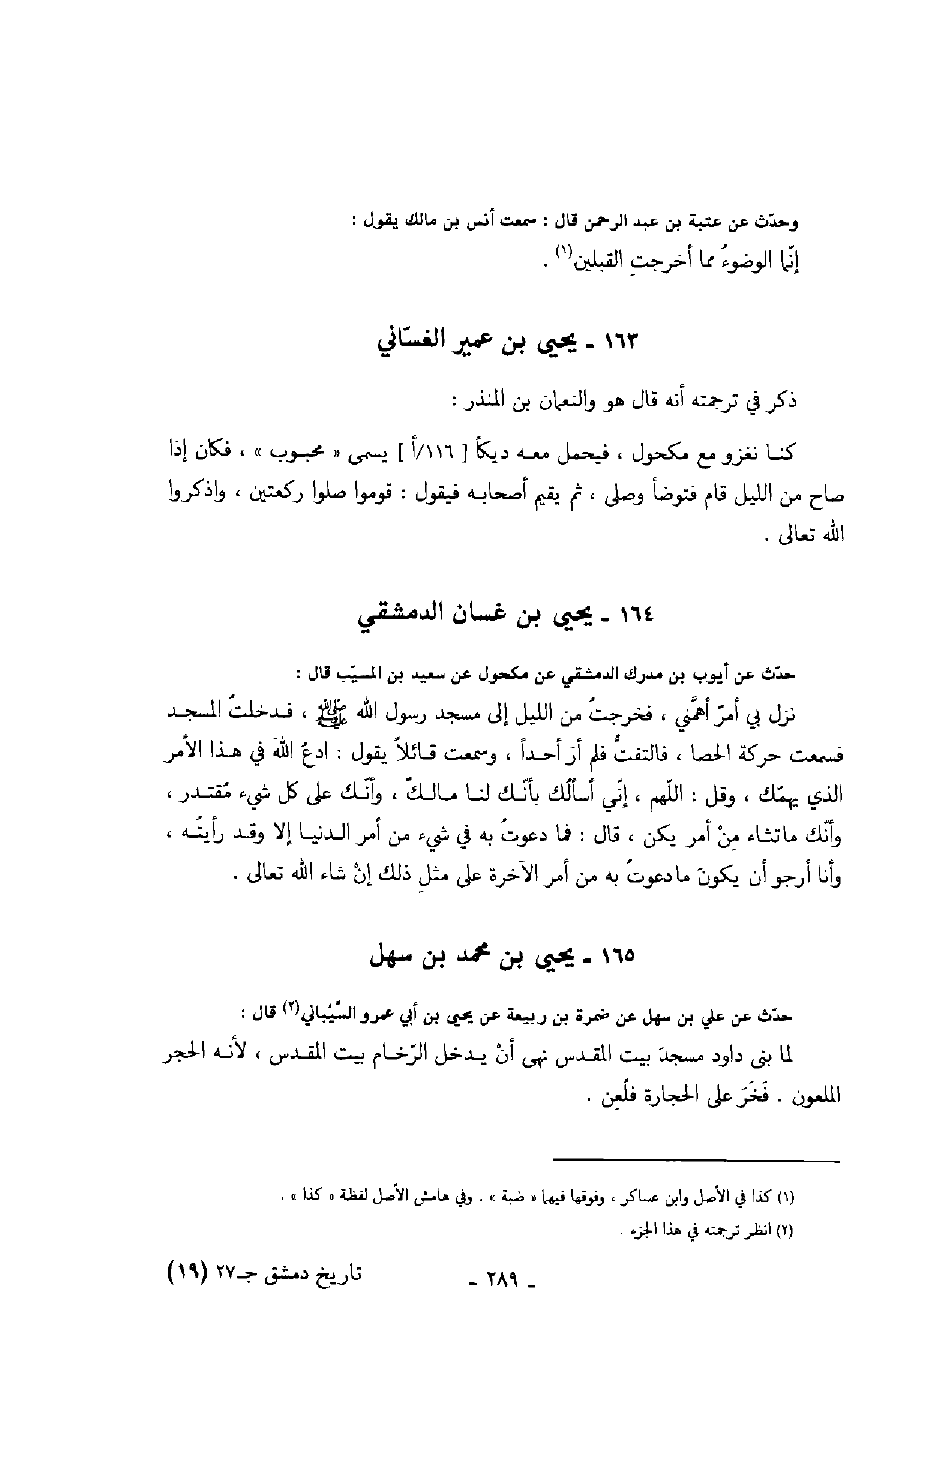 وحدّث عن عتبة بن عبد الرحمن قال : سمعت أنس بن مالك يقول :
إنّما الوضوءُ مما أخرجتِ القبلين(١) .
١٦٣ ـ يحيى بن عمير الغسّاني
ذكر في ترجمته أنه قال هو والنعمان بن المنذر :
كنـا نغزو مع مكحول ، فيحمل معـه ديكاً [ ١١٦/أ ] يسمى « محبـوب » ، فكان إذا
صاح من الليل قام فتوضأ وصلى ، ثم يقيم أصحابـه فيقول : قوموا صلوا ركعتين ، واذكروا
الله تعالى .
١٦٤ ـ يحيى بن غسان الدمشقي
حدّث عن أيوب بن مدرك الدمشقي عن مكحول عن سعيد بن المسيّب قال :
نزل بي أمرٌ أهمَّني ، فخرجتُ من الليل إلى مسجد رسول الله ﷺ ، فـدخلتُ المسجـد
فسمعت حركة الحصا ، فالتفتُّ فلم أرَ أحـداً ، وسمعت قـائلاً يقول : ادعُ اللهَ في هـذا الأمر
الذي يهمّك ، وقل : اللهم ، إنّي أسـألك بأنّـك لنـا مـالـكٌ ، وأنّـك على كل شيء مُقتـدر ،
وأنّك ماتشاء مِنْ أمر يكن ، قال : فما دعوتُ به في شيء من أمر الـدنيـا إلا وقـد رأيتُـه ،
وأنا أرجو أن يكونَ مادعوتُ به من أمر الآخرة على مثلِ ذلك إنْ شاء الله تعالى .
١٦٥ ـ يحيى بن محمد بن سهل
حدّث عن علي بن سهل عن ضمرة بن ربيعة عن يحيى بن أبي عمرو السَّيْباني(٢) قال :
لما بنى داود مسجدَ بيت المقـدس نهى أنْ يـدخل الرّخـام بيت المقـدس ، لأنـه الحجر
الملعون . فَخَرَ على الحجارة فلُعِن .
(١) كذا في الأصل وابن عساكر ، وفوقها فيهما « ضبة » . وفي هامش الأصل لفظة « كذا » .
(٢) انظر ترجمته في هذا الجزء .
ـ ٢٨٩ ـ تاريخ دمشق جـ٢٧ (١٩)